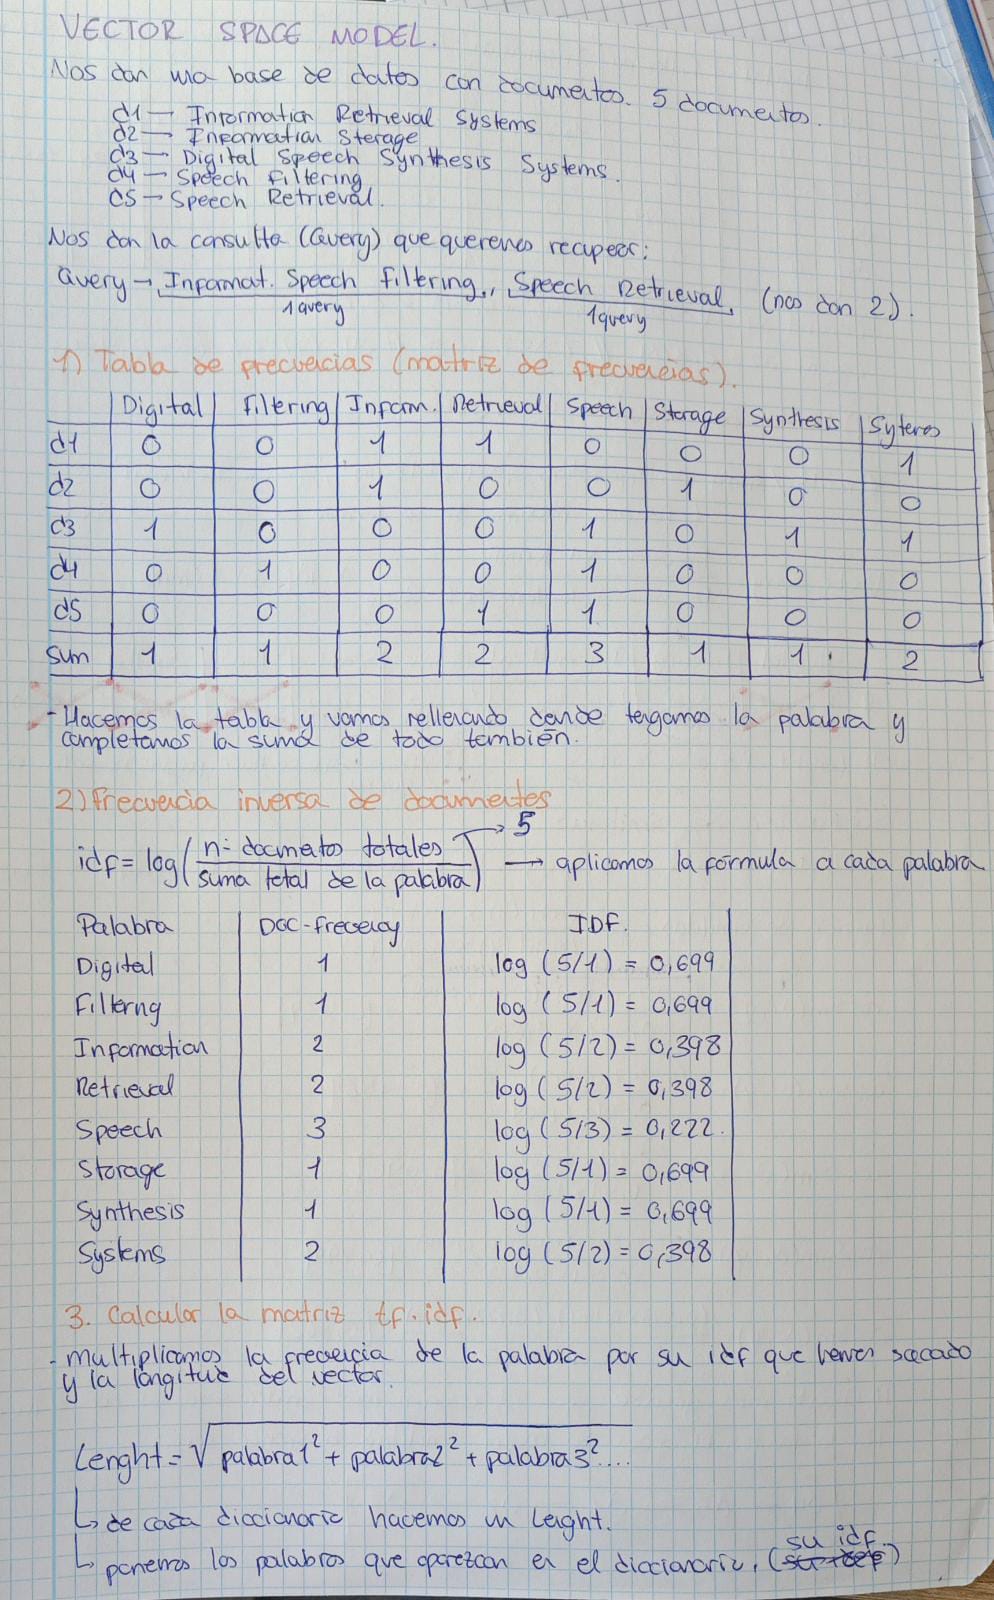 VECTOR SPACE MODEL.
Nos dan una base de datos con documentos. 5 documentos.
d1 — Information Retrieval Systems
d2 — Information Storage
d3 — Digital Speech Synthesis Systems.
d4 — Speech Filtering
d5 — Speech Retrieval.
Nos dan la consulta (Query) que queremos recuperar:
Query → Informat. Speech Filtering, Speech Retrieval, (nos dan 2).
1 query 1 query
1) Tabla de frecuencias (matriz de frecuencias).
Digital Filtering Inform. Retrieval Speech Storage Synthesis Systems
d1 0 0 1 1 0 0 0 1
d2 0 0 1 0 0 1 0 0
d3 1 0 0 0 1 0 1 1
d4 0 1 0 0 1 0 0 0
d5 0 0 0 1 1 0 0 0
Sum 1 1 2 2 3 1 1 2
- Hacemos la tabla y vamos rellenando donde tengamos la palabra y
completamos la suma de todo también.
2) Frecuencia inversa de documentos
5
idf = log(nº documentos totales / suma total de la palabra) → aplicamos la fórmula a cada palabra
Palabra DOC-frecency IDF.
Digital 1 log (5/1) = 0,699
Filterng 1 log (5/1) = 0,699
Information 2 log (5/2) = 0,398
Retrieval 2 log (5/2) = 0,398
Speech 3 log (5/3) = 0,222.
Storage 1 log (5/1) = 0,699
Synthesis 1 log (5/1) = 0,699
Systems 2 log (5/2) = 0,398
3. Calcular la matriz tf.idf.
- multiplicamos la frecuencia de la palabra por su idf que hemos sacado
y la longitud del vector.
Lenght = √palabra1² + palabra2² + palabra3²....
↳ de cada diccionario hacemos un Lenght.
↳ ponemos las palabras que aparezcan en el diccionario, (su idf)